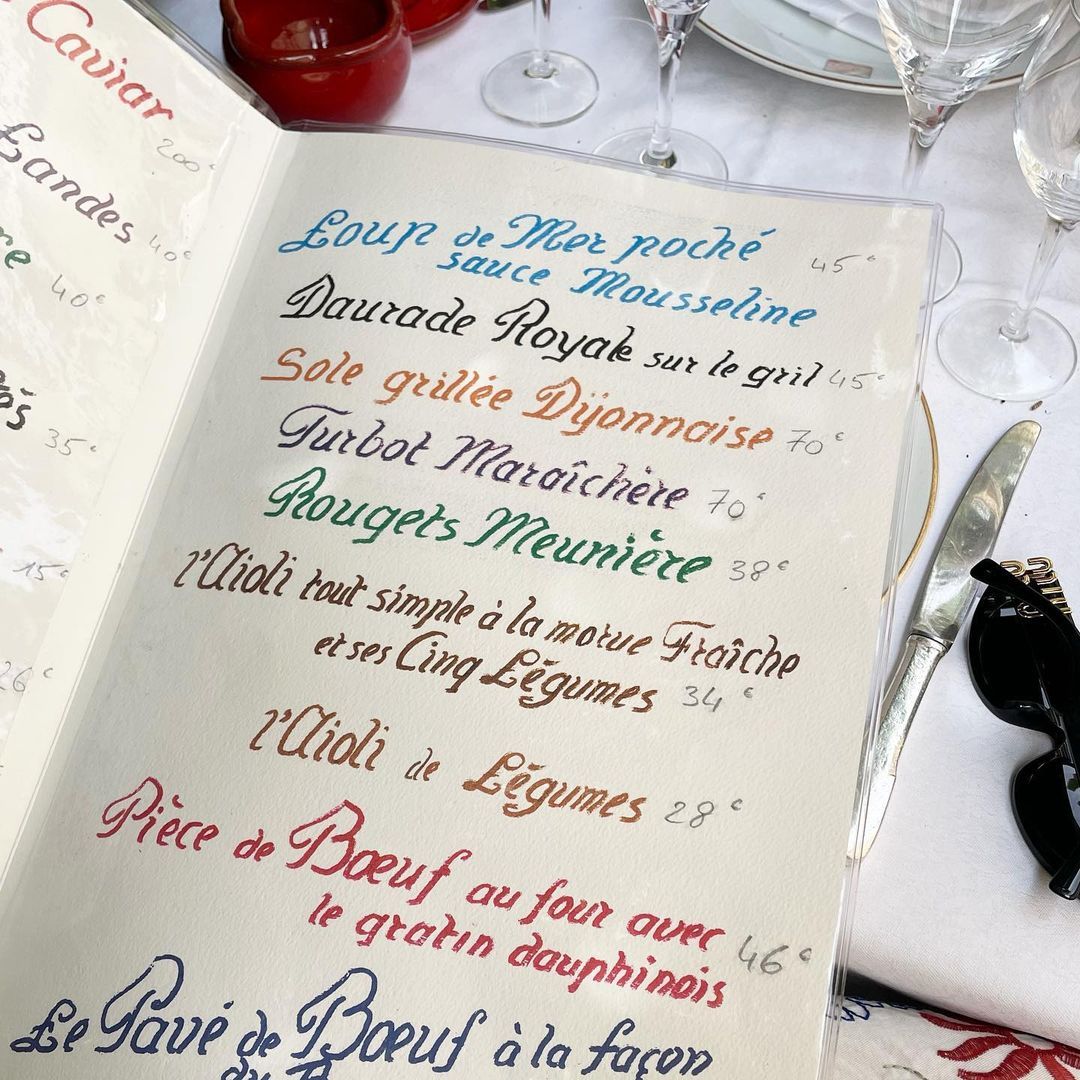 Caviar
200€
Landes 40€
40€
35€
15€
26€
Loup de Mer poché 45€
sauce Mousseline
Daurade Royale sur le gril 45€
Sole grillée Dijonnaise 70€
Turbot Maraîchère 70€
Rougets Meunière 38€
l'Aioli tout simple à la morue Fraîche
et ses Cinq Légumes 34€
l'Aioli de Légumes 28€
Pièce de Bœuf au four avec
le gratin dauphinois 46€
Le Pavé de Bœuf à la façon
du